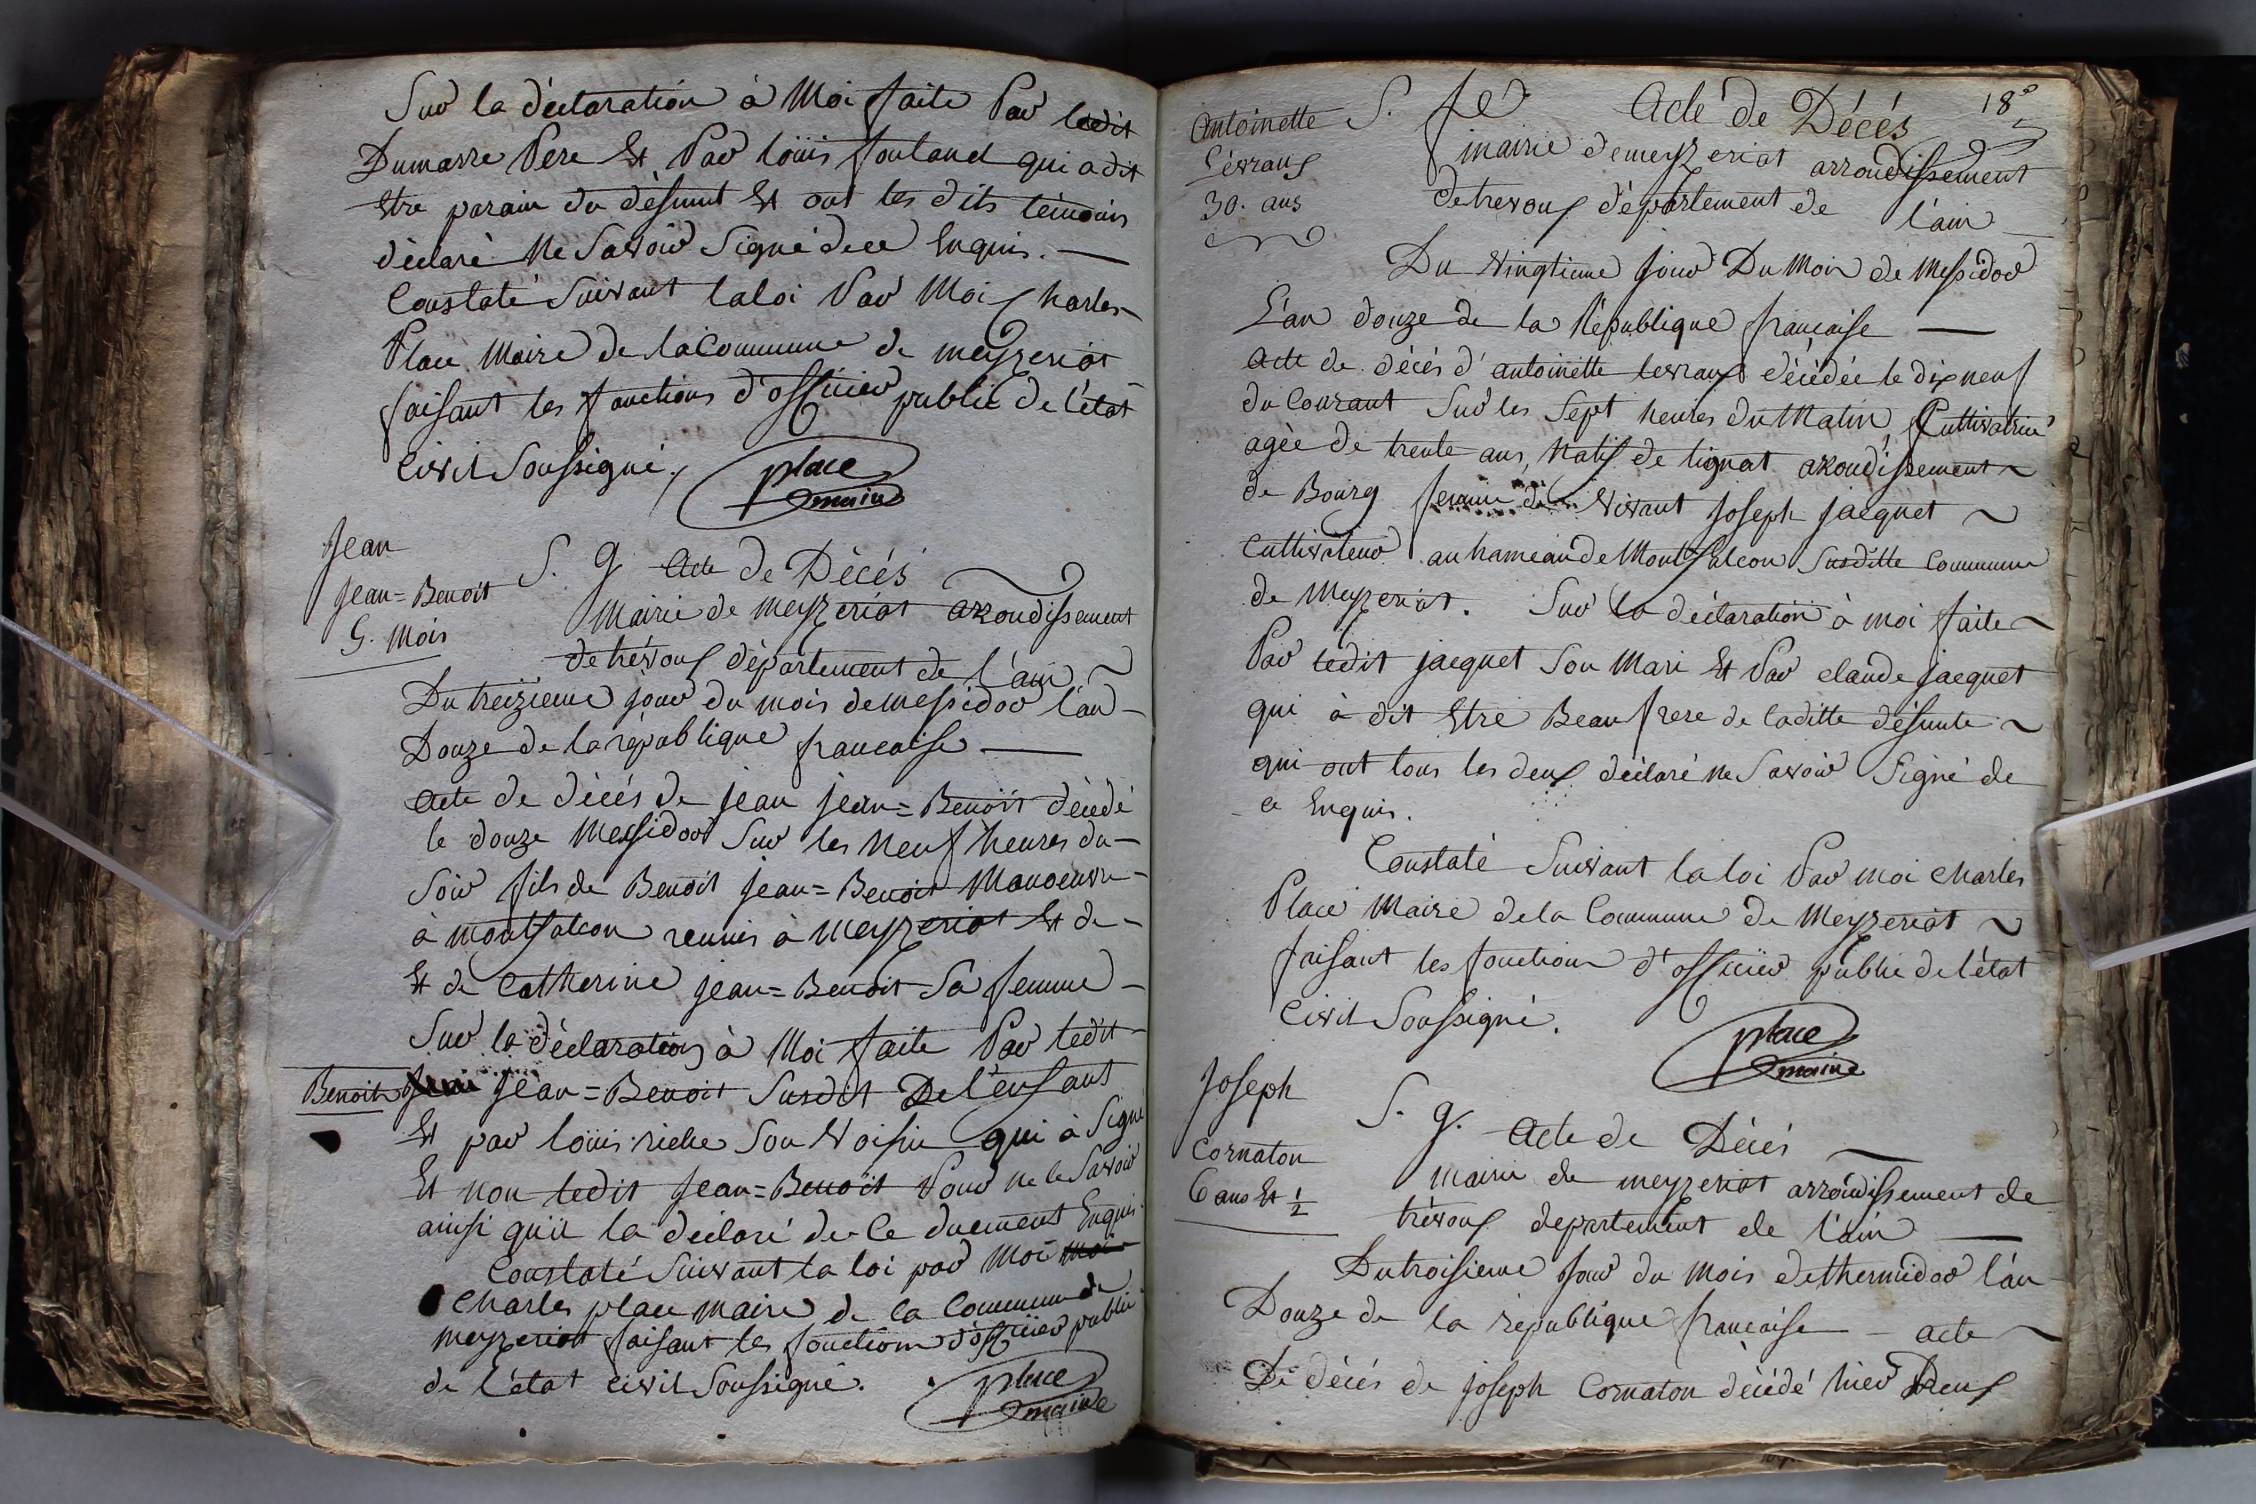 Sur la déclaration à Moi faite Par ledit
Dumarre Pere Et Par loüis fouland qui a dit
Etre parain du défunt Et ont les dits témoins
déclaré Ne Savoir Signé de ce Enquis. —
Constaté Suivant la loi Par Moi Charles
Place Maire de la Commune de meyzeriat
faisant les fonctions d'officier public de l'état
Civil Soussigné.
place
maire
Jean
Jean=Benoit
5. Mois
S. g. Acte de Décés
Mairie de meyzeriat arrondissement
de trévoux département de l'ain
Du treizieme jour du mois de messidor l'an
Douze de la république francaise —
Acte de décés de jean jean=Benoit décédé
le douze Messidor Sur les neuf heures du
Soir fils de Benoit jean=Benoit Manoeuvre
à montfalcon reunies à meyzeriat Et de
Et de Catherine jean=Benoit Sa femme
Sur la déclaration à Moi faite Par ledit
Benoit
jean=Benoit Susdit De l'enfant
Et par loüis riche Son Voisin qui à Signé
Et non ledit jean=Benoit Pour ne le Savoir
ainsi qu'il la déclaré de Ce duement Enquis.
Constaté Suivant la loi par Moi moi
Charles place maire de la Commune de
meyzeriat faisant les fonctions d'officier public
de l'état civil Soussigné.
place
maire
18e
Antoinette
Lévraux
30. ans
S. fe Acte de Décés
mairie de meyzeriat arrondissement
de trevoux département de l'ain
Du Vingtieme jour Du Mois de Messidor
L'an douze de la République française —
Acte de décés d'antoinette levraux décédée le dix neuf
du Courant Sur les Sept heures du Matin Cultivatrice
agée de trente ans, Natif de tignat arondissement
de Bourg femme de Vivant Joseph Jacquet
Cultivateur au hameau de Montfalcon Susditte Commune
de Meyzeriat. Sur la déclaration à moi faite
Par ledit jacquet Son Mari Et Par claude Jacquet
qui à dit Etre Beau frere de laditte défunte
qui ont tous les deux déclaré ne Savoir Signé de
ce Enquis.
Constaté Suivant la loi Par moi Charles
Place Maire de la Commune de Meyzeriat
faisant les fonctions d'officier public de l'état
Civil Soussigné.
place
maire
Joseph
Cornaton
6 ans Et 1/2
S. g. Acte de Décés
Mairie de meyzeriat arrondissement de
trévoux departement de l'ain —
Du troisieme Jour du mois de thermidor l'an
Douze de la république francaise — acte
De décés de Joseph Cornaton décédé hier Deux